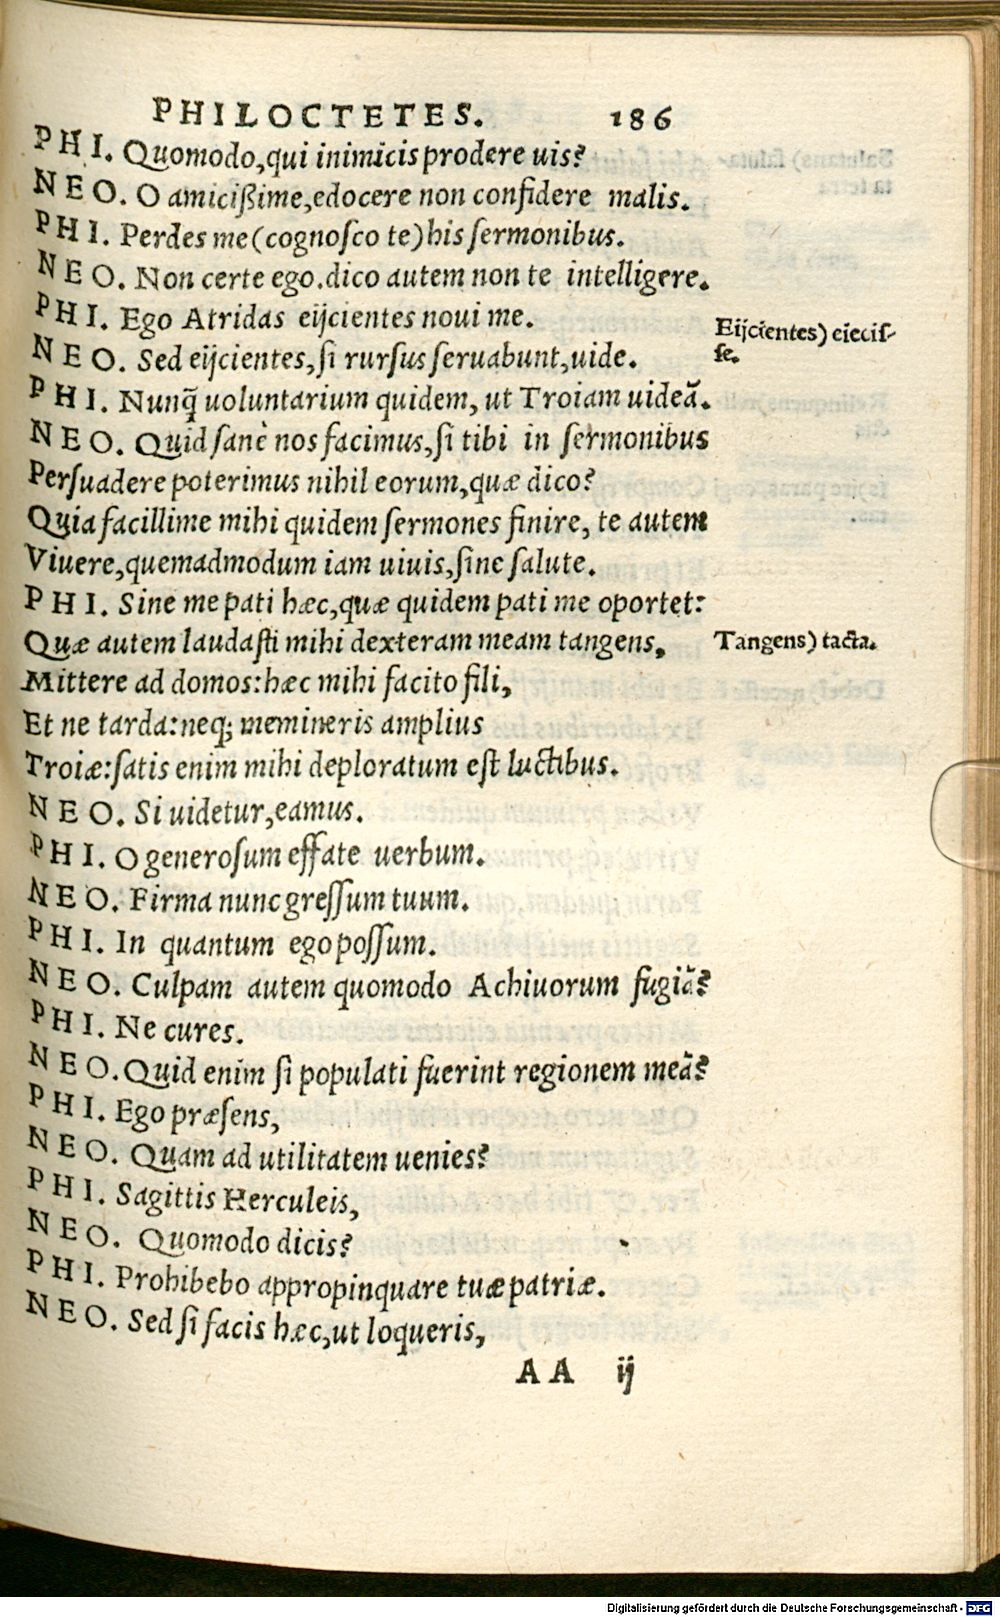 PHILOCTETES. 186
PHI. Quomodo, qui inimicis prodere uis?
NEO. O amicißime, edocere non confidere malis.
PHI. Perdes me (cognoſco te) his ſermonibus.
NEO. Non certe ego. dico autem non te intelligere.
PHI. Ego Atridas eijcientes noui me.
Eijcientes) eieciſ-
ſe.
NEO. Sed eijcientes, ſi rurſus ſeruabunt, uide.
PHI. Nunq̃ uoluntarium quidem, ut Troiam uideā.
NEO. Quid sanè nos facimus, ſi tibi in ſermonibus
Perſuadere poterimus nihil eorum, quæ dico?
Quia facillime mihi quidem ſermones finire, te autem
Viuere, quemadmodum iam uiuis, ſine ſalute.
PHI. Sine me pati hæc, quæ quidem pati me oportet:
Quæ autem laudaſti mihi dexteram meam tangens,
Tangens) tacta.
Mittere ad domos: hæc mihi facito fili,
Et ne tarda: neq; memineris amplius
Troiæ: ſatis enim mihi deploratum eſt luctibus.
NEO. Si uidetur, eamus.
PHI. O generoſum effate uerbum.
NEO. Firma nunc greſſum tuum.
PHI. In quantum ego poſſum.
NEO. Culpam autem quomodo Achiuorum fugiā?
PHI. Ne cures.
NEO. Quid enim ſi populati fuerint regionem meā?
PHI. Ego præſens,
NEO. Quam ad utilitatem uenies?
PHI. Sagittis Herculeis,
NEO. Quomodo dicis?
PHI. Prohibebo appropinquare tuæ patriæ.
NEO. Sed ſi facis hæc, ut loqueris,
AA ij
Digitalisierung gefördert durch die Deutsche Forschungsgemeinschaft - DFG